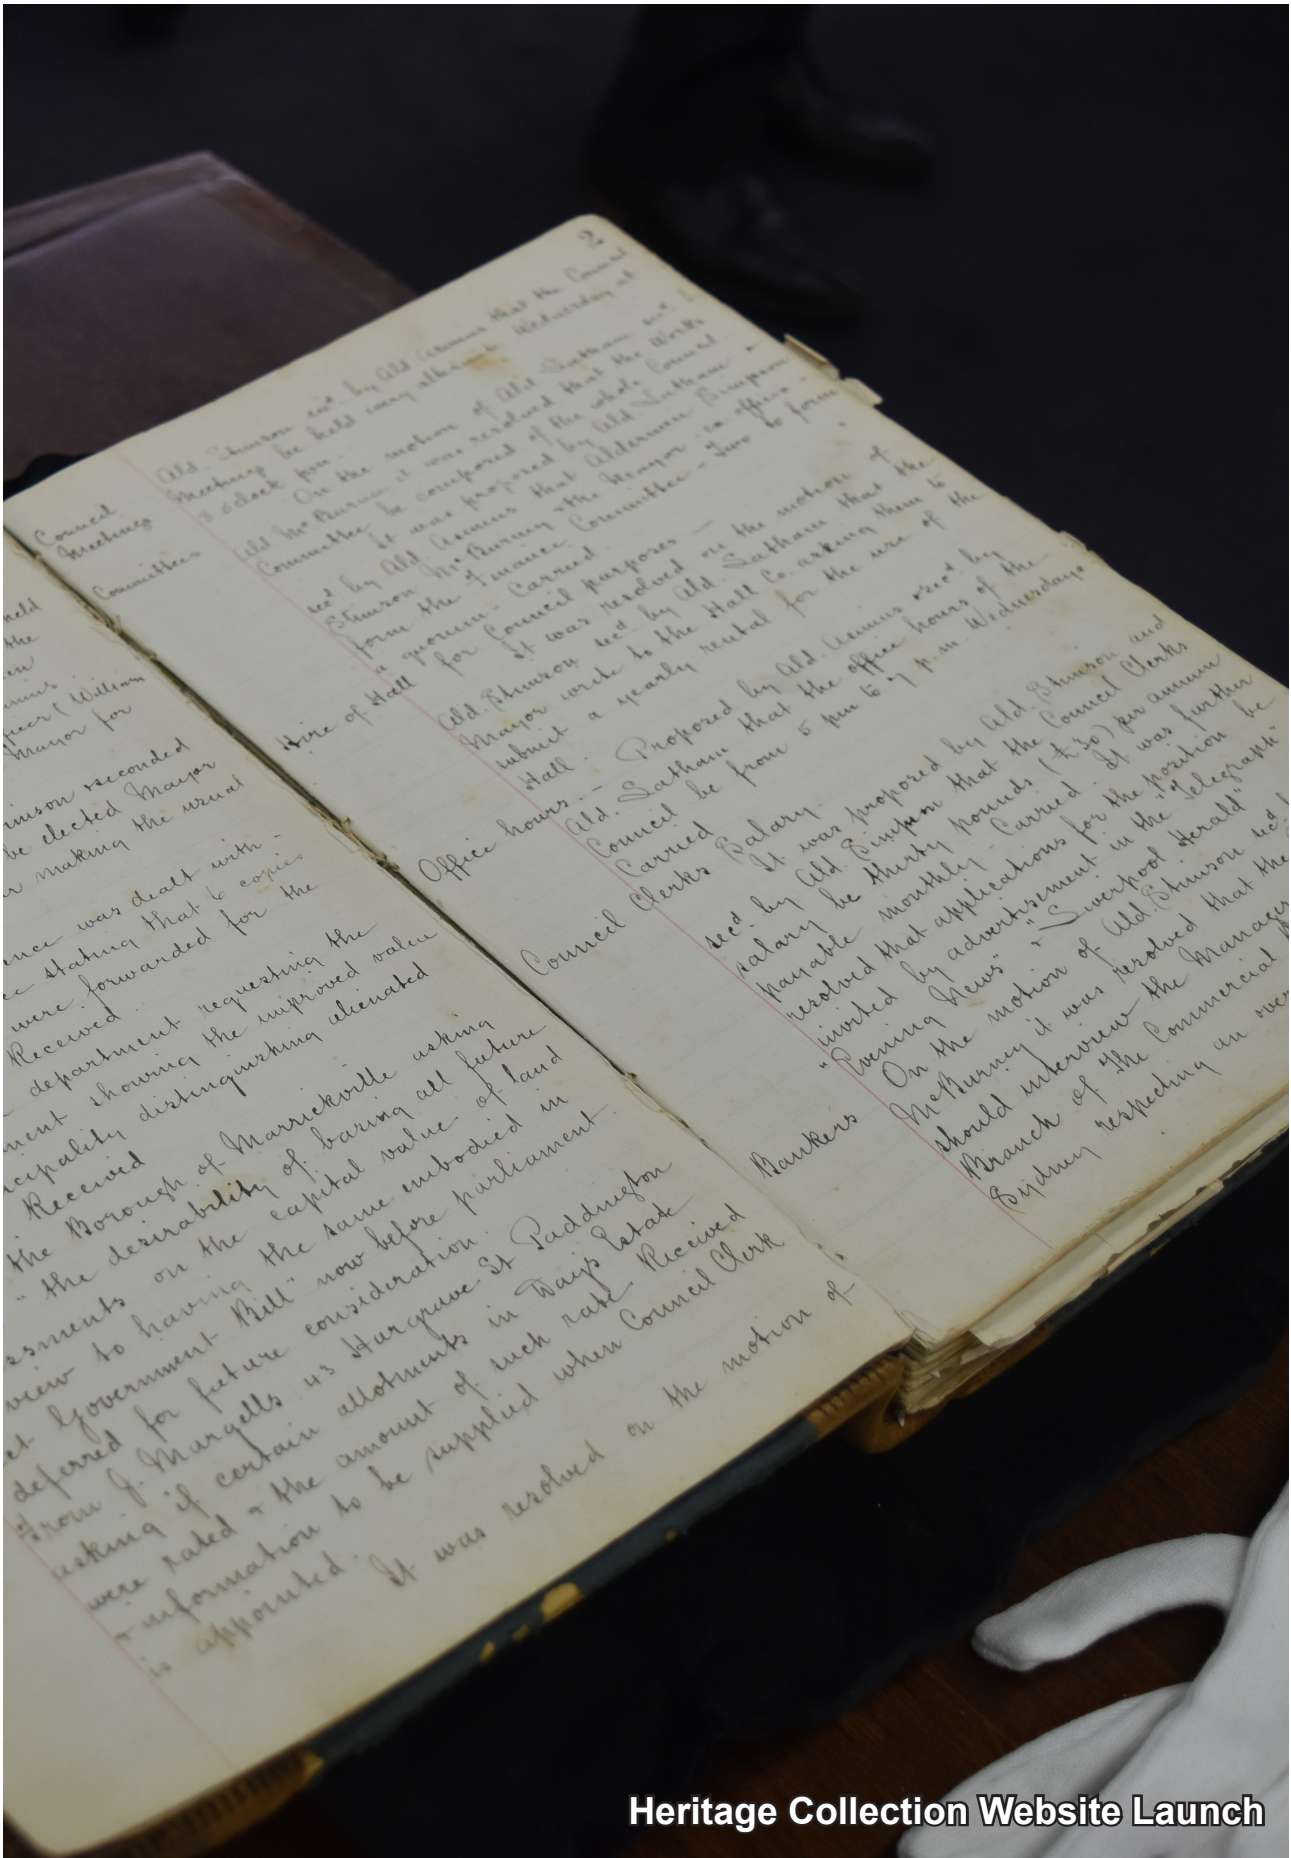 neld
the
en
(William
Mayor for
seconded
be elected Mayor
making the usual
ence was dealt with
stating that 6 copies
were forwarded for the
Received.
department requesting the
ment showing the improved value
cipality distinguishing alienated
Received
the Borough of Marrickville asking
" the desirability of basing all future
essments on the capital value of land
view to having the same embodied in
Government Bill" now before parliament.
deferred for future consideration.
From J. Margells 43 Hargrave St Paddington
asking if certain allotments in Days Estate
were rated & the amount of such rate Received
& information to be supplied when Council Clerk
is appointed.
It was resolved on the motion of
2
Council
Meetings
Ald. Stimson secd. by Ald. Asimus that the Council
Meetings be held every alternate Wednesday at
8 o'clock pm.
Committees
On the motion of Ald. Latham secd. by
Ald McBurney it was resolved that the Works
Committee be composed of the whole Council.
It was proposed by Ald Latham &
secd by Ald. Asimus that Aldermen Simpson
Stimson McBurney & the Mayor ex officio
form the Finance Committee - Two to form
a quorum. Carried.
Hire of Hall for Council purposes -
It was resolved on the motion of
Ald. Stimson secd by Ald. Latham that the
Mayor write to the Hall Co. asking them to
submit a yearly rental for the use of the
Hall.
Office hours. - Proposed by Ald. Asimus & secd by
Ald. Latham that the office hours of the
Council be from 5 pm to 7 p.m. Wednesdays.
Carried
Council Clerks Salary.
It was proposed by Ald. Stimson and
secd by Ald Simpson that the Council Clerks
salary be thirty pounds (£30) per annum
payable monthly - Carried. It was further
resolved that applications for the position be
invited by advertisement in the "Telegraph"
"Evening News" & "Liverpool Herald"
Bankers
On the motion of Ald. Stimson secd
McBurney it was resolved that the
should interview the Manager
Branch of the Commercial
Sydney respecting an over
Heritage Collection Website Launch